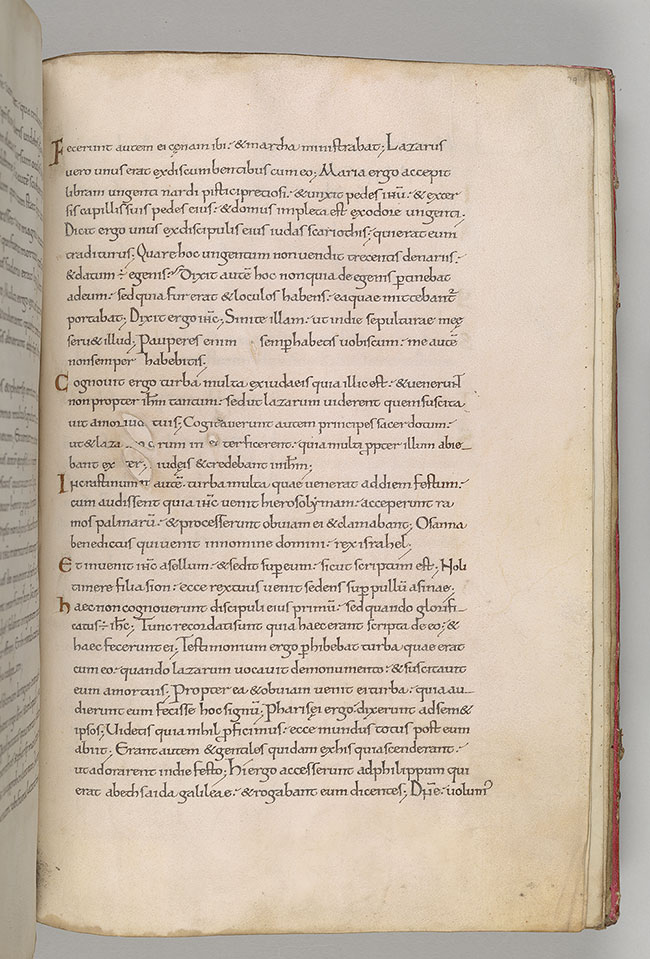 Fecerunt autem ei cęnam ibi· & martha ministrabat; Lazarus
vero unus erat ex discumbentibus cum eo; Maria ergo accepit
libram ungenti nardi pistici pretiosi· & unxit pedes ihū· & exter
sit capillis suis pedes eius· & domus impleta est ex odore ungenti·
Dicit ergo unus ex discipulis eius iudas scariothis· qui erat eum
traditurus; Quare hoc ungentum non vendit trecentis denariis·
& datum ÷ egenis; Dixit autē hoc non quia de egenis ptinebat
ad eum· sed quia fur erat & loculos habens· ea quae mittebant̃
portabat; Dixit ergo ihc; Sinite illam· ut in die sepulturae meę
seru& illud; Pauperes enim semp habetis vobiscum· me autē
non semper habebitis;
Cognovit ergo turba multa ex iudaeis quia illic est· & venerut̄
non propter ihm tantum· sed ut lazarum viderent quem suscita
vit a mortuis; Cogitaverunt autem principes sacerdotum·
ut & laza rum in ter ficerent· quia multi ppter illum abie
bant ex iudęis & credebant in ihm;
In crastinum autē· turba multa quae venerat ad diem festum·
cum audissent quia ihc venit hierosolymam· acceperunt ra
mos palmarū· & processerunt obviam ei & clamabant; Osanna
benedictus qui venit in nomine domini· rex israhel·
Et invenit ihc asellum· & sedit sup eum· sicut scriptum est; Noli
timere filia sion· ecce rex tuus venit sedens sup pullū asinae;
haec non cognoverunt discipuli eius primū· sed quando glorifi
catus ÷ ihc; Tunc recordati sunt quia haec erant scripta de eo; &
haec fecerunt ei; Testimonium ergo phibebat turba quae erat
cum eo· quando lazarum vocavit de monumento· & suscitavit
eum a mortuis; Propterea & obviam venit ei turba· quia au
dierunt eum fecisse hoc signū; Pharisęi ergo dixerunt ad sem&
ipsos; Videtis quia nihil pficimus· ecce mundus totus post eum
abiit; Erant autem & gentiles quidam ex his qui ascenderant·
ut adorarent in die festo; hi ergo accesserunt ad philippum qui
erat a bethsaida galileae· & rogabant eum dicentes; Dn̄e· volum'